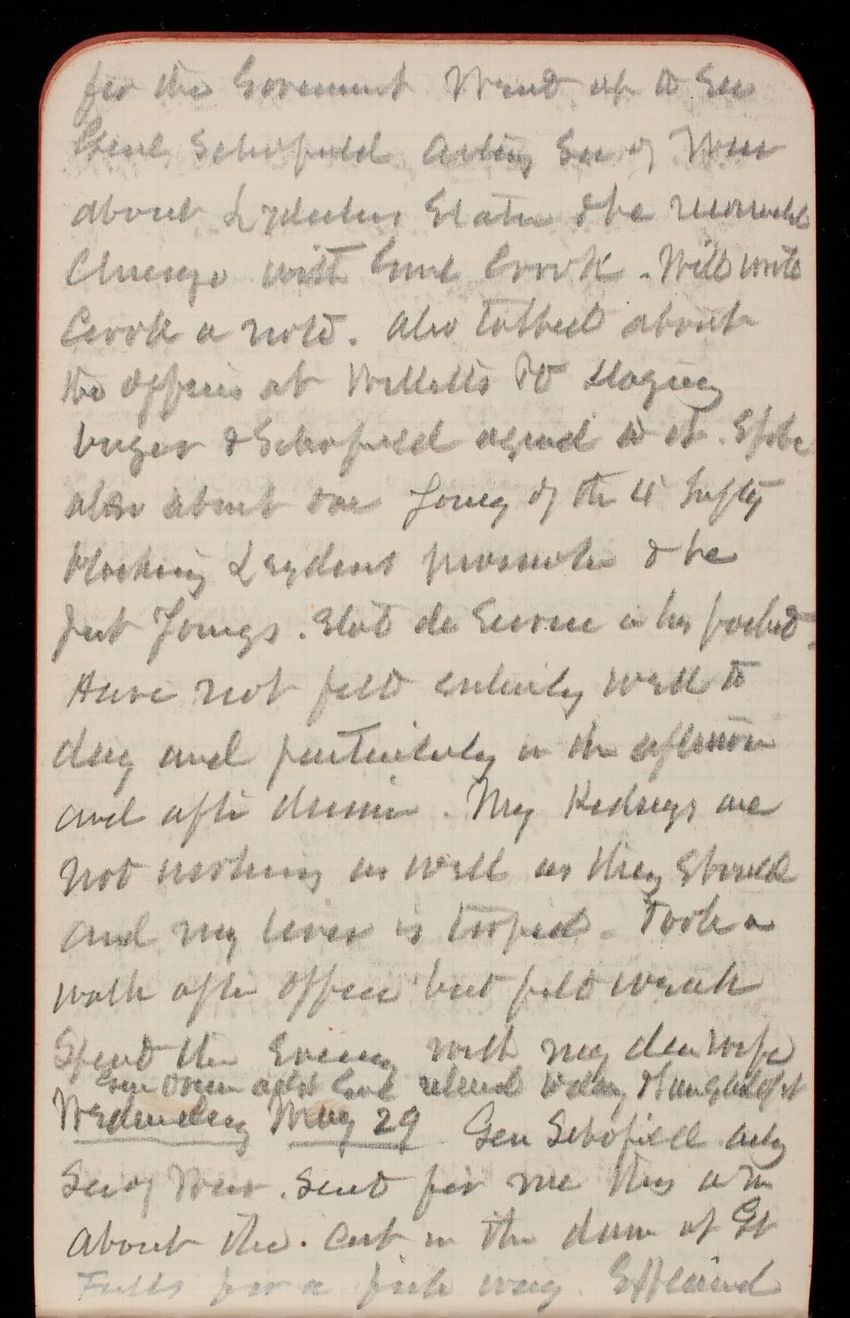 for the Government Went up to See
Genl Schofield Acting Sec of War
about Lydeckers Station & be
Chicago with Genl Crook. Will write
Crook a note. Also talked about
the officers at Willetts Pt
& Schofield agreed to it. Spoke
also about one Young of the 4th Infty
blocking Leydens promotion & he
put Youngs. in his pocket.
Have not felt entirely well to
day and particularly in the afternoon
and after dinner. My Kidneys are
not working as well as they should
and my liver is torpid. Took a
walk after office but felt weak
Spent the Evening with my dear wife
Wednesday May 29 Gen Schofield actg
Sec of War. Sent for me this a m
about the. cut in the dam at Gt
Falls for a fish way. Explained